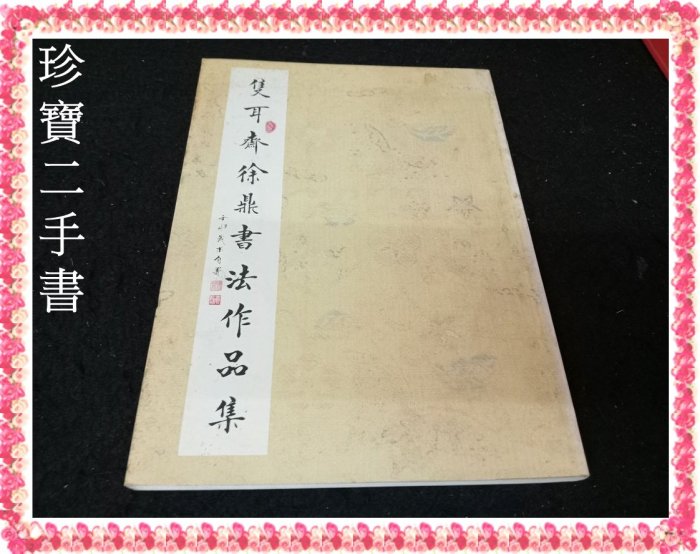 珍寶二手書
雙耳齋徐鼎書法作品集